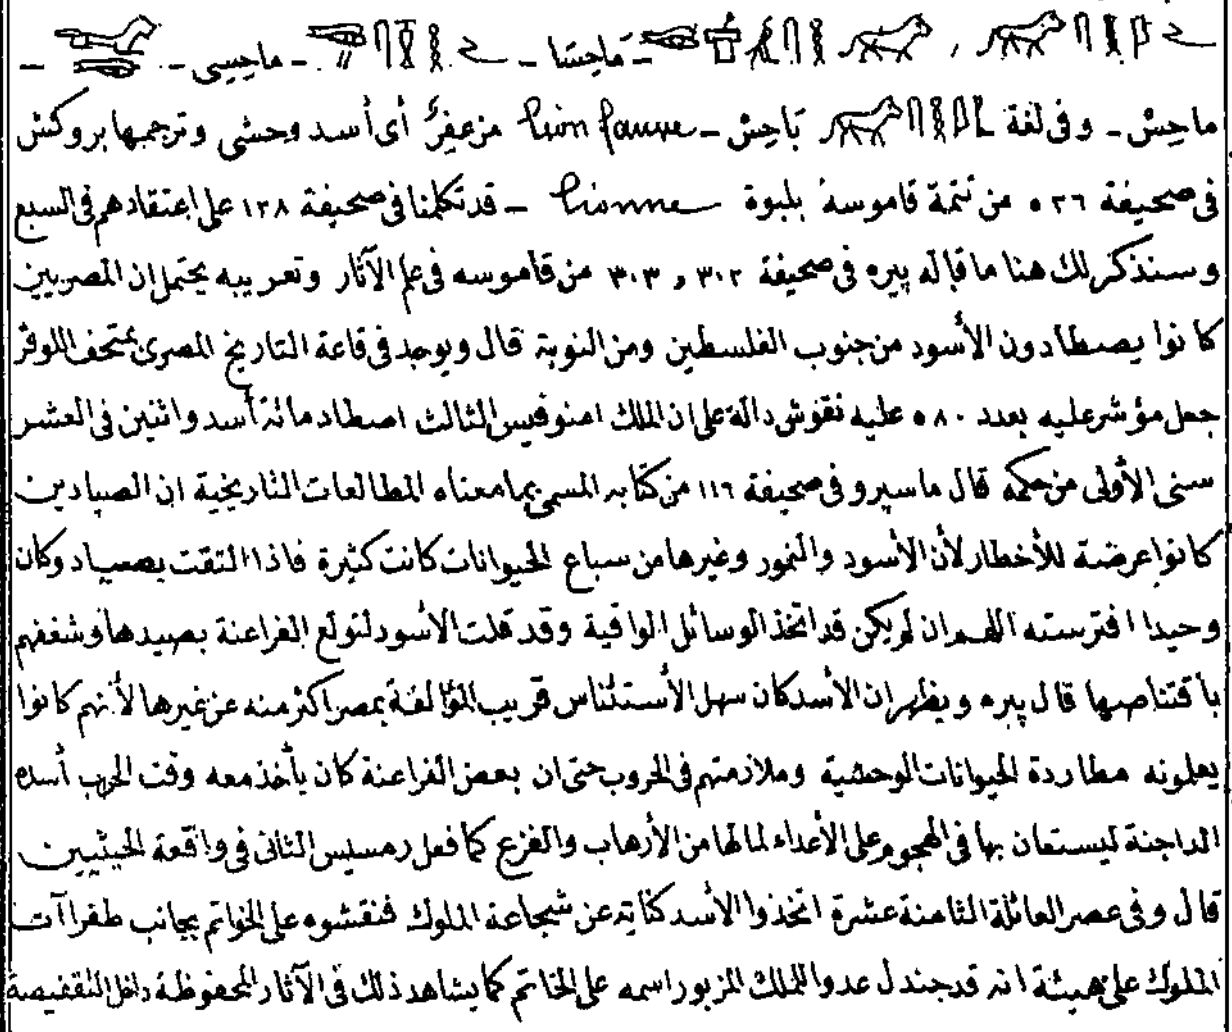 ـ مَاحِسَا ـ ـ ماحِسى ـ ـ
ماحِسْ ـ وفى لغة بَاحِسْ ـ lion fauve مزعفِرٌ أى أسد وحشى وترجمها بروكش
فى صحيفة ٥٣٦ من تتمة قاموسه بلبوة lionne ـ قد تكلمنا فى صحيفة ١٣٨ على اعتقادهم فى السبع
وسنذكر لك هنا ما قاله پيره فى صحيفة ٣٠٢ و ٣٠٣ من قاموسه فى علم الآثار وتعريبه يحتمل ان المصريين
كانوا يصطادون الأسود من جنوب الفلسطين ومن النوبة قال ويوجد فى قاعة التاريخ المصرى بمتحف اللوڤر
جعل مؤشر عليه بعدد ٥٨٠ عليه نقوش دالة على ان الملك امنوفيس الثالث اصطاد مائة أسد واثنين فى العشر
سنى الأولى من حكمه قال ماسپرو فى صحيفة ١١٦ من كتابه المسمى بما معناه المطالعات التاريخية ان الصيادين
كانوا عرضة للأخطار لأن الأسود والنمور وغيرها من سباع الحيوانات كانت كثيرة فاذا التقت بصياد وكان
وحيدا افترسته اللهم ان لم يكن قد اتخذ الوسائل الواقية وقد قلت الأسود لتولع الفراعنة بصيدها وشغفهم
باقتناصها قال پيره ويظهر ان الأسد كان سهل الأستئناس قريب المؤالفة بمصر اكثر منه عن غيرها لأنهم كانوا
يعلمونه مطاردة الحيوانات الوحشية وملازمتهم فى الحروب حتى ان بعض الفراعنة كان يأخذ معه وقت الحرب أسده
الداجنة ليستعان بها فى الهجوم على الأعداء لمالها من الأرهاب والفزع كما فعل رمسيس الثانى فى واقعة الحيثيين
قال وفى عصر العائلة الثامنة عشرة اتخذوا الأسد كناية عن شجاعة الملوك فنقشوه على الخواتم بجانب طغراآت
الملوك على هيئة انه قد جندل عدوا للملك المزبور اسمه على الخاتم كما يشاهد ذلك فى الآثار المحفوظة داخل